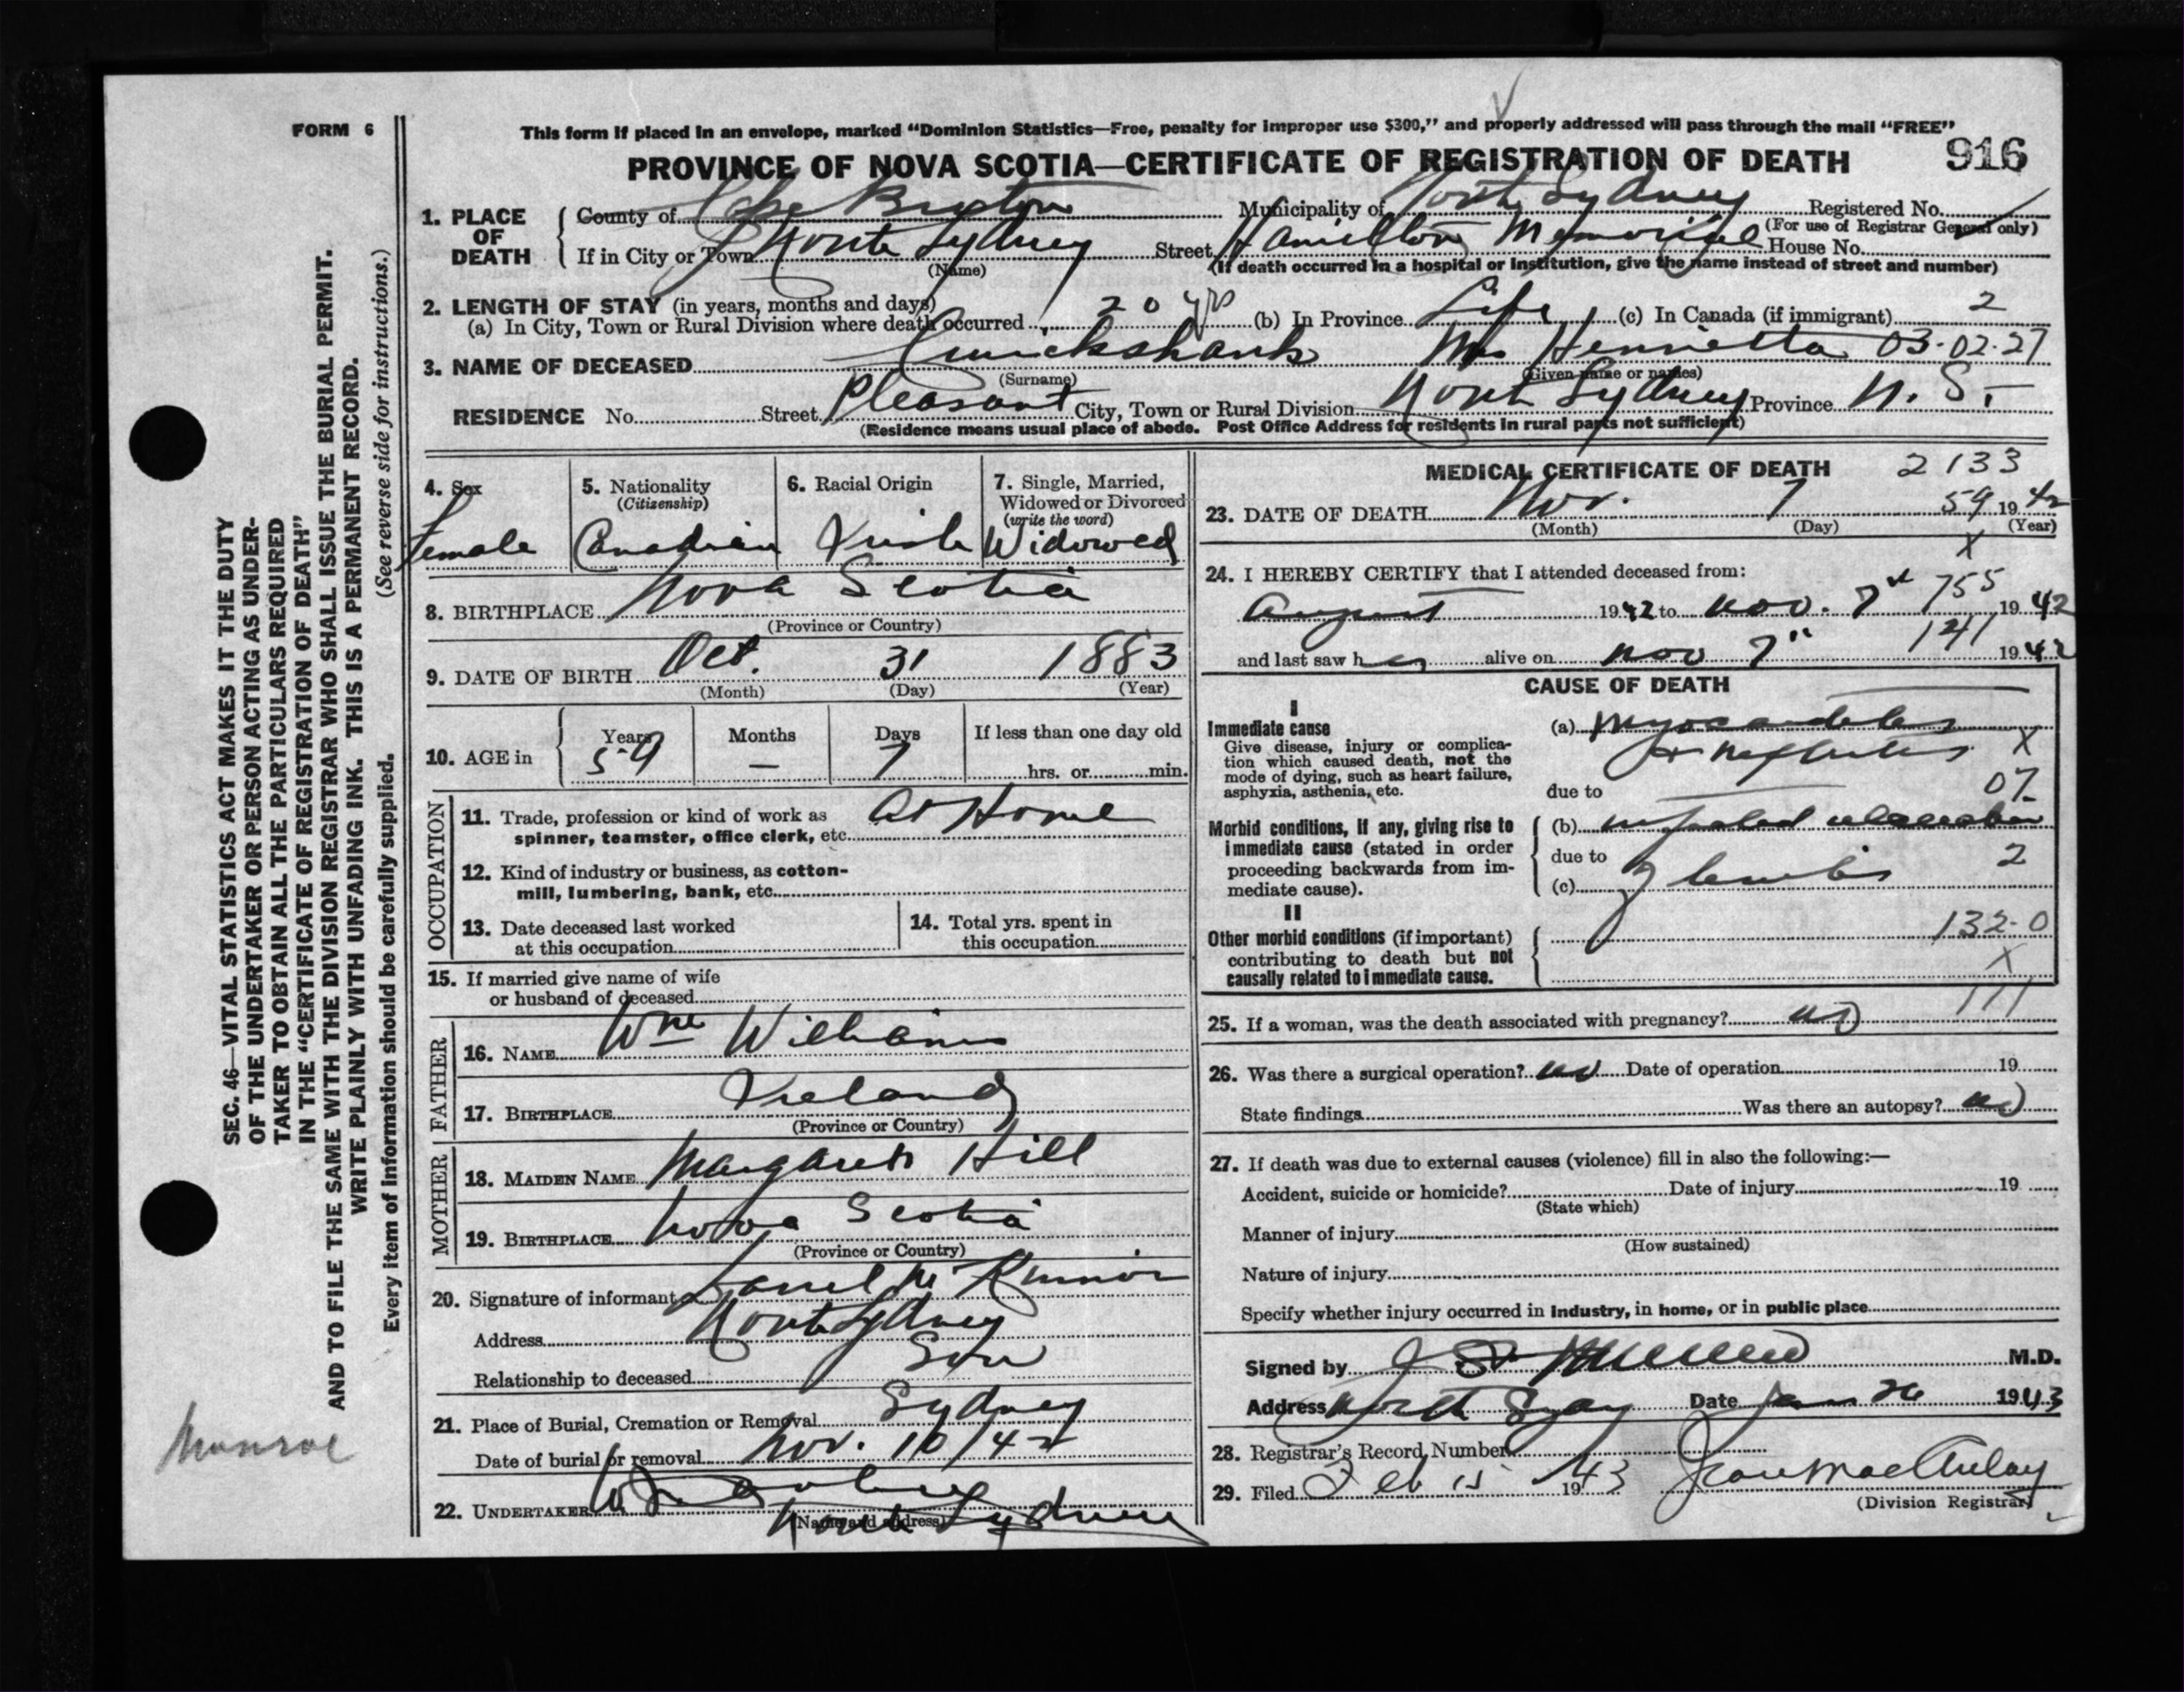 FORM 6
This form if placed in an envelope, marked "Dominion Statistics—Free, penalty for improper use $300," and properly addressed will pass through the mail "FREE"
PROVINCE OF NOVA SCOTIA—CERTIFICATE OF REGISTRATION OF DEATH 916
1. PLACE OF DEATH
County of Cape Breton Municipality of North Sydney Registered No.
(For use of Registrar General only)
If in City or Town North Sydney Street Hamilton Memorial House No.
(Name)
(If death occurred in a hospital or institution, give the name instead of street and number)
2. LENGTH OF STAY (in years, months and days)
(a) In City, Town or Rural Division where death occurred 20 yrs (b) In Province Life (c) In Canada (if immigrant) 2
3. NAME OF DECEASED Cruickshank Mrs Henrietta 03-02-27
(Surname) (Given name or names)
RESIDENCE No. Street Pleasant City, Town or Rural Division North Sydney Province N. S.
(Residence means usual place of abode. Post Office Address for residents in rural parts not sufficient)
4. Sex Female
5. Nationality (Citizenship) Canadian
6. Racial Origin Irish
7. Single, Married, Widowed or Divorced (write the word) Widowed
8. BIRTHPLACE Nova Scotia
(Province or Country)
9. DATE OF BIRTH Oct. 31 1883
(Month) (Day) (Year)
10. AGE in Years 59 Months — Days 7 If less than one day old
hrs. or min.
OCCUPATION
11. Trade, profession or kind of work as spinner, teamster, office clerk, etc. At Home
12. Kind of industry or business, as cotton-mill, lumbering, bank, etc.
13. Date deceased last worked at this occupation
14. Total yrs. spent in this occupation
15. If married give name of wife or husband of deceased
FATHER
16. NAME Wm Williams
17. BIRTHPLACE Ireland
(Province or Country)
MOTHER
18. MAIDEN NAME Margaret Hill
19. BIRTHPLACE Nova Scotia
(Province or Country)
20. Signature of informant
Address North Sydney
Relationship to deceased Son
21. Place of Burial, Cremation or Removal Sydney
Date of burial or removal Nov. 10/42
22. UNDERTAKER
(Name and address)
North Sydney
MEDICAL CERTIFICATE OF DEATH 2133
23. DATE OF DEATH Nov. 7 59 1942
(Month) (Day) (Year)
X
24. I HEREBY CERTIFY that I attended deceased from:
August 1942 to Nov. 7" 755 1942
and last saw her alive on Nov 7" 141 1942
CAUSE OF DEATH
I
Immediate cause
Give disease, injury or complication which caused death, not the mode of dying, such as heart failure, asphyxia, asthenia, etc.
(a) Myocarditis
+ Nephritis X
due to 07
Morbid conditions, if any, giving rise to immediate cause (stated in order proceeding backwards from immediate cause).
(b)
due to 2
(c)
II
Other morbid conditions (if important) contributing to death but not causally related to immediate cause.
132-0
X
25. If a woman, was the death associated with pregnancy? no 111
26. Was there a surgical operation? no Date of operation 19
State findings Was there an autopsy? no
27. If death was due to external causes (violence) fill in also the following:—
Accident, suicide or homicide? Date of injury 19
(State which)
Manner of injury
(How sustained)
Nature of injury
Specify whether injury occurred in Industry, in home, or in public place
Signed by M.D.
Address North Sydney Date Jan 26 1943
28. Registrar's Record Number
29. Filed Feb 15 1943 Jean MacAulay
(Division Registrar)
SEC. 46—VITAL STATISTICS ACT MAKES IT THE DUTY
OF THE UNDERTAKER OR PERSON ACTING AS UNDER-
TAKER TO OBTAIN ALL THE PARTICULARS REQUIRED
IN THE "CERTIFICATE OF REGISTRATION OF DEATH"
AND TO FILE THE SAME WITH THE DIVISION REGISTRAR WHO SHALL ISSUE THE BURIAL PERMIT.
WRITE PLAINLY WITH UNFADING INK. THIS IS A PERMANENT RECORD.
Every item of information should be carefully supplied. (See reverse side for instructions.)
Munroe